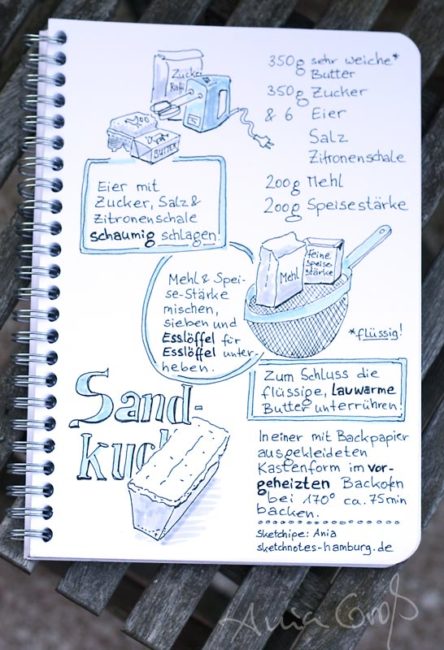 350g sehr weiche*
Butter
350g Zucker
& 6 Eier
Salz
Zitronenschale
200g Mehl
200g Speisestärke
Zucker
BUTTER
Eier mit
Zucker, Salz &
Zitronenschale
schaumig schlagen.
Mehl
Feine
Speise-
stärke
Mehl & Spei-
se-Stärke
mischen,
sieben und
Esslöffel für
Esslöffel unter-
heben.
*flüssig!
Zum Schluss die
flüssige, lauwarme
Butter unterrühren!
Sand-
kuch
In einer mit Backpapier
ausgekleideten
Kastenform im vor-
geheizten Backofen
bei 170° ca. 75min
backen.
Sketchipe: Ania
sketchnotes-hamburg.de
Ania Groß